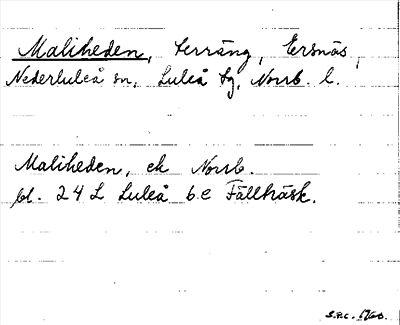 Maliheden, terräng, Ersnäs,
Nederluleå sn, Luleå tg, Norrb. l.
Maliheden, ek Norrb.
bl. 24 L Luleå 6 e Fällträsk.
S.R.C.